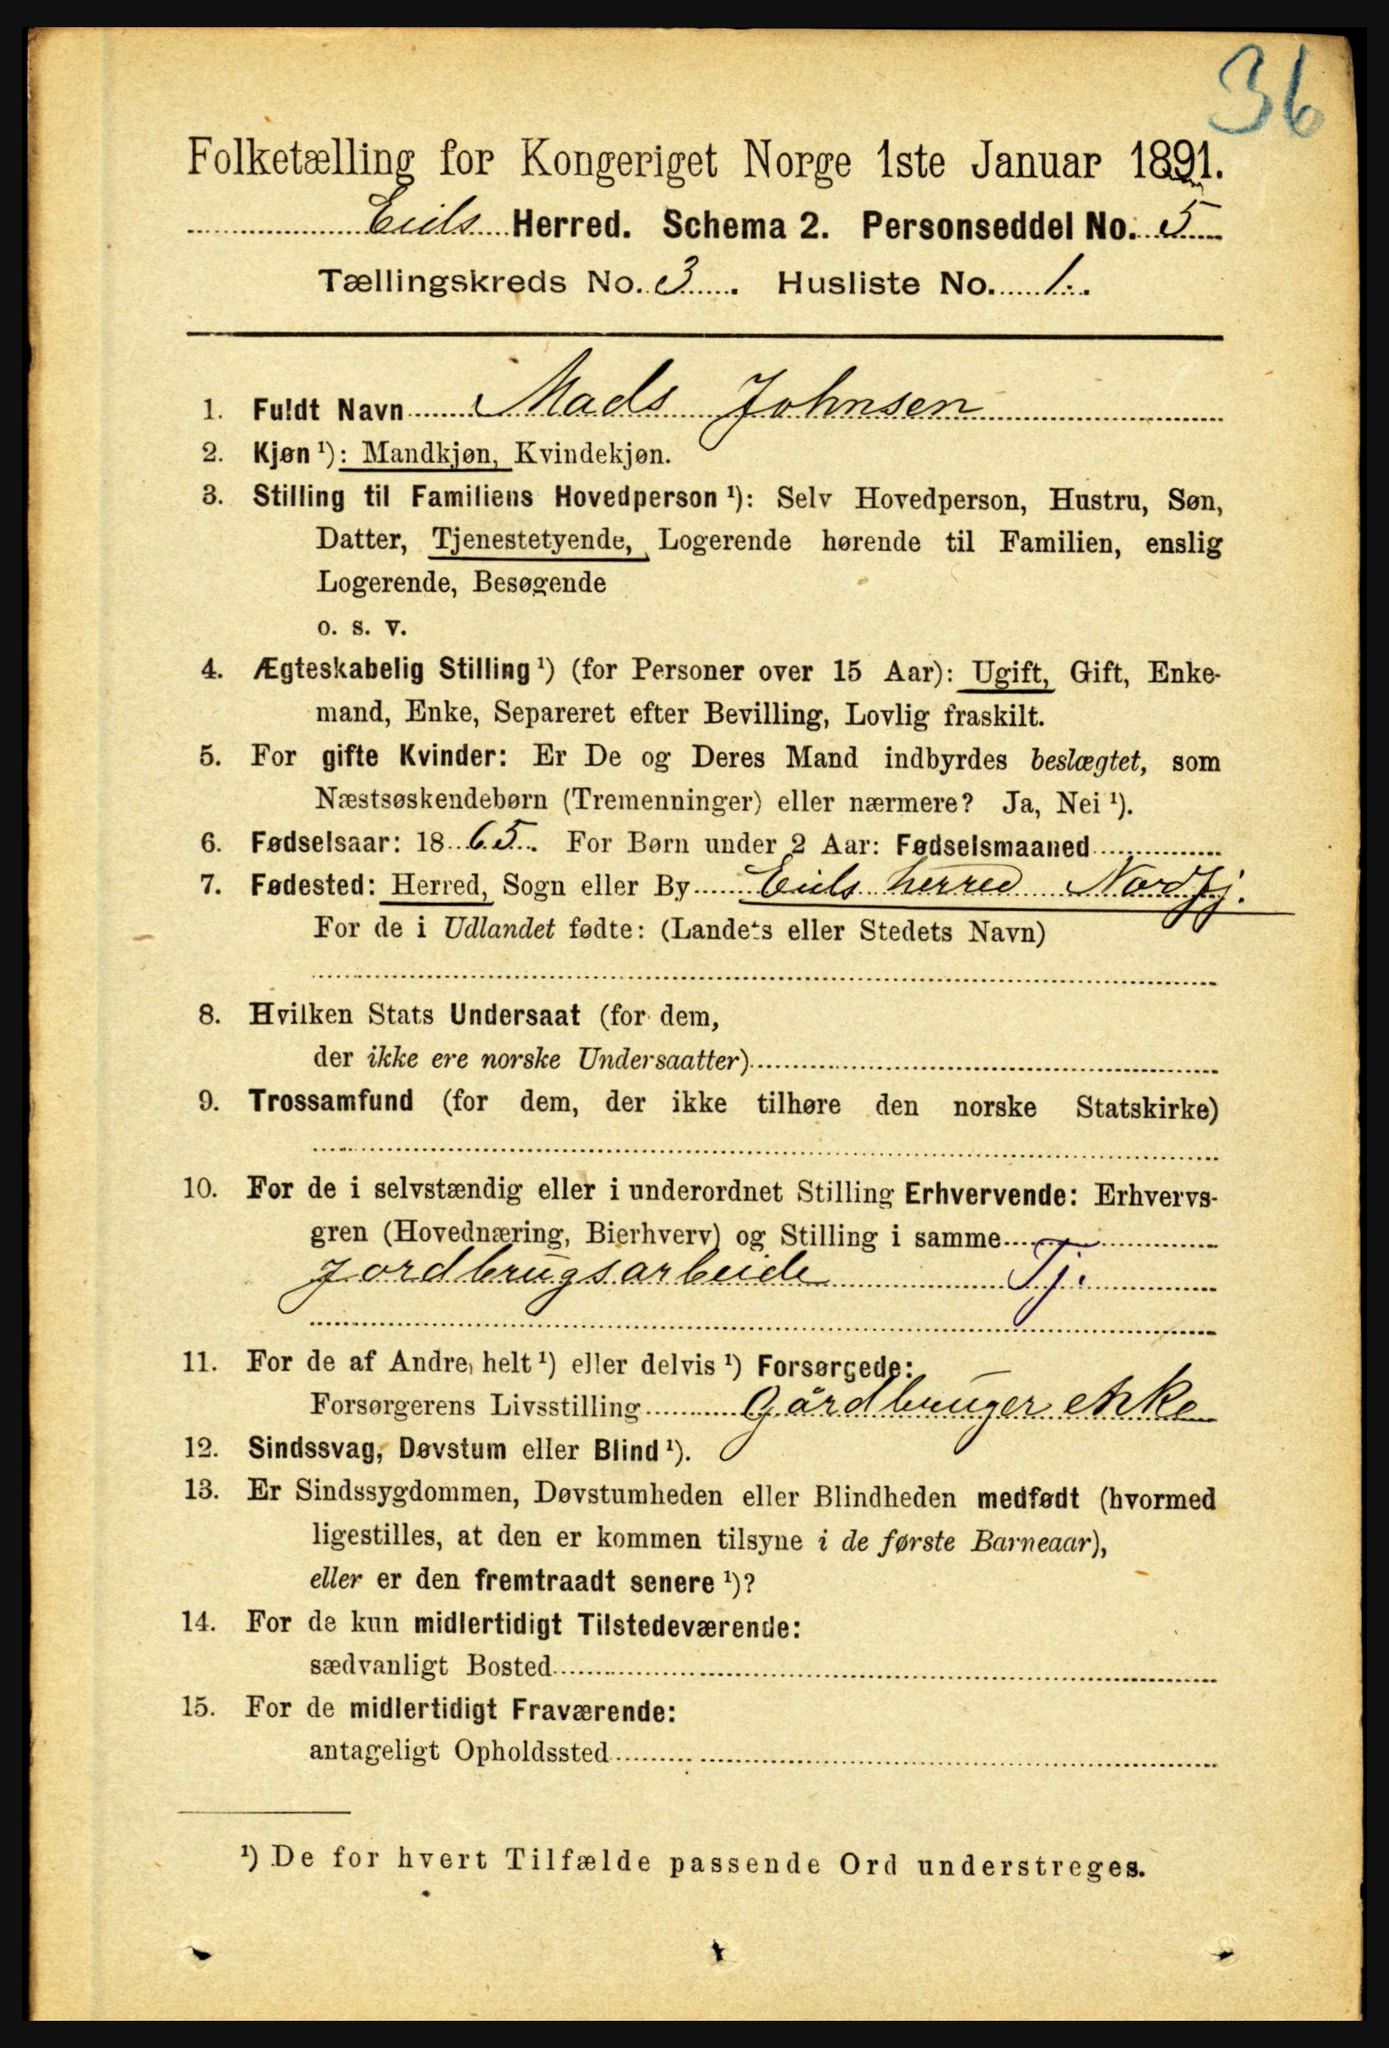 36
Folketælling for Kongeriget Norge 1ste Januar 1891.
Eids Herred. Schema 2. Personseddel No. 5
Tællingskreds No. 3. Husliste No. 1.
1. Fuldt Navn Mads Johnsen
2. Kjøn ¹): Mandkjøn, Kvindekjøn.
3. Stilling til Familiens Hovedperson ¹): Selv Hovedperson, Hustru, Søn,
Datter, Tjenestetyende, Logerende hørende til Familien, enslig
Logerende, Besøgende
o. s. v.
4. Ægteskabelig Stilling ¹) (for Personer over 15 Aar): Ugift, Gift, Enke-
mand, Enke, Separeret efter Bevilling, Lovlig fraskilt.
5. For gifte Kvinder: Er De og Deres Mand indbyrdes beslægtet, som
Næstsøskendebørn (Tremenninger) eller nærmere? Ja, Nei ¹).
6. Fødselsaar: 1865. For Børn under 2 Aar: Fødselsmaaned
7. Fødested: Herred, Sogn eller By Eids herred Nordfj.
For de i Udlandet fødte: (Landets eller Stedets Navn)
8. Hvilken Stats Undersaat (for dem,
der ikke ere norske Undersaatter)
9. Trossamfund (for dem, der ikke tilhøre den norske Statskirke)
10. For de i selvstændig eller i underordnet Stilling Erhvervende: Erhvervs-
gren (Hovednæring, Bierhverv) og Stilling i samme
Jordbrugsarbeide Tj.
11. For de af Andre, helt ¹) eller delvis ¹) Forsørgede:
Forsørgerens Livsstilling Gårdbruger enke
12. Sindssvag, Døvstum eller Blind ¹).
13. Er Sindssygdommen, Døvstumheden eller Blindheden medfødt (hvormed
ligestilles, at den er kommen tilsyne i de første Barneaar),
eller er den fremtraadt senere ¹)?
14. For de kun midlertidigt Tilstedeværende:
sædvanligt Bosted
15. For de midlertidigt Fraværende:
antageligt Opholdssted
¹) De for hvert Tilfælde passende Ord understreges.